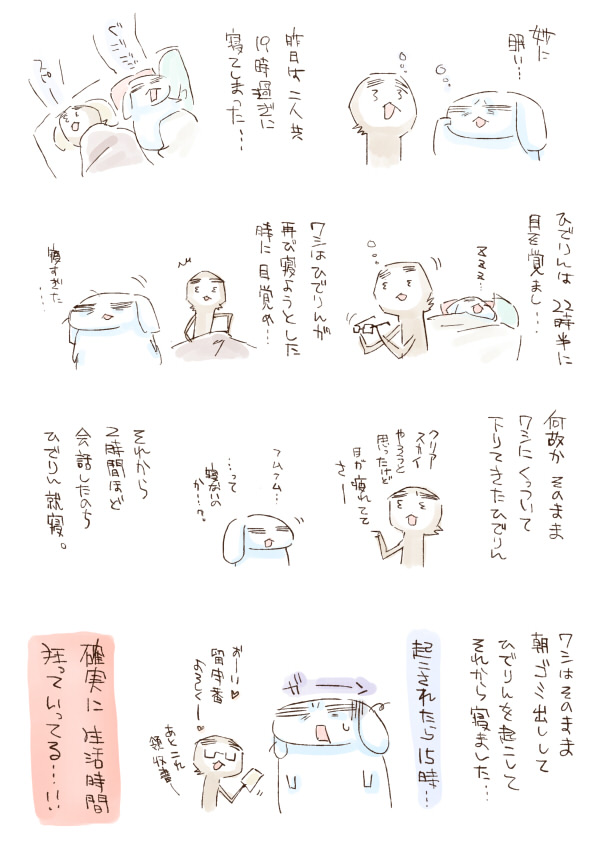 妙に
眠い…
昨日は二人共
19時過ぎに
寝てしまった…
ぐごごご
スピー
ひでりんは22時半に
目を覚まし…
zzz…
ワシはひでりんが
再び寝ようとした
時に目覚め…
寝すぎた…
何故かそのまま
ワシにくっついて
下りてきたひでりん
クリア
スカイ
やろうと
思ったけど
目が疲れてて
さー
フムフム…
…って
寝ないの
か…?
それから
2時間ほど
会話したのち
ひでりん就寝。
ワシはそのまま
朝ゴミ出しして
ひでりんを起こして
それから寝ました…
起こされたら15時…
ガーーン
おーい♡
留守番
よろしくー♡
あとこれ
領収書〜
確実に生活時間
狂っていってる…!!